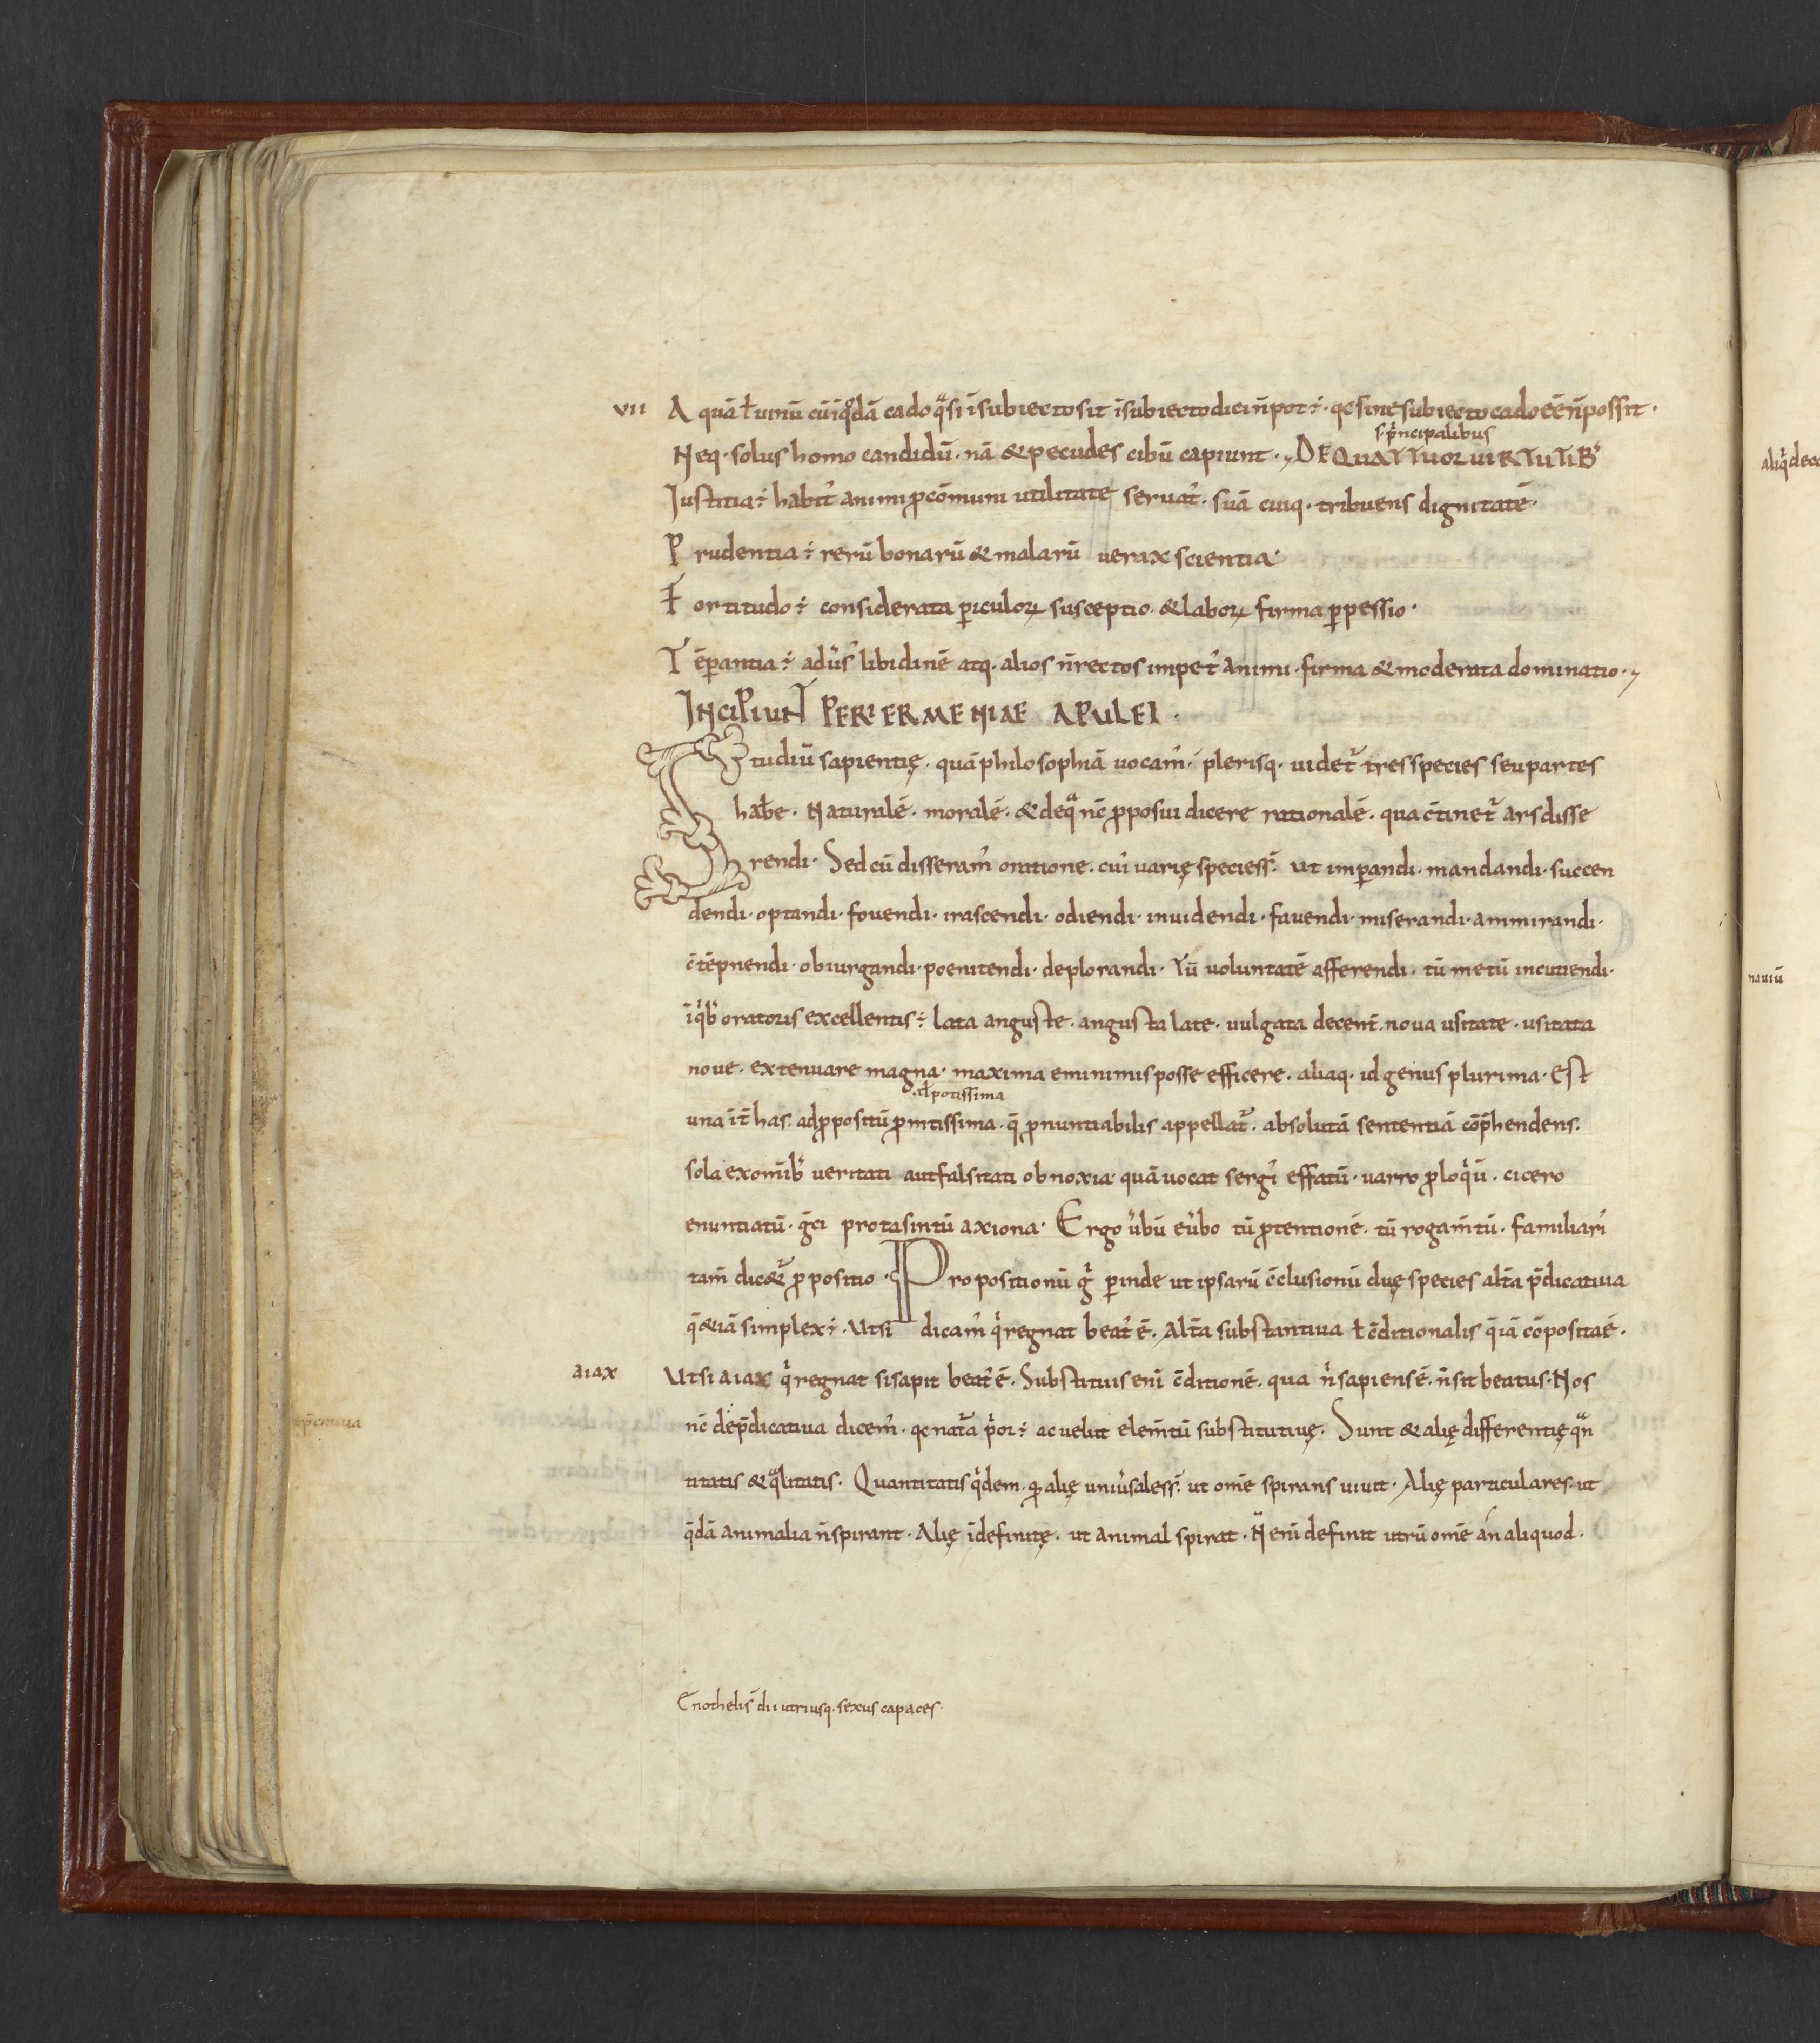 vii A quā ł unū cū iqͦdā cado qͣsi ī subiecto sit ī subiecto dici n̄ pot ÷ · qđ sine subiecto cado eē n̄ possit ·
s· p̄ncipalibus
Neq · solus homo candidū · nā & pecudes cibū capiunt · DE QUATTUOR UIRTUTIB;
Justitia ÷ habit᾿ animi ꝓ cōmuni utilitate seruat᾿ · suā cuiq · tribuens dignitatē ·
Prudentia ÷ rerū bonarū & malarū uerax scientia ·
Fortitudo ÷ considerata ꝑiculoꝝ susceptio · & laboꝝ firma ꝑpessio ·
Tēꝑantia ÷ adūs᾿ libidinē atq · alios n̄ rectos impet᾿ animi · firma & moderata dominatio ·
INCIPIUNT PERIERMENIAE APULEI ·
Studiū sapientię · quā philosophiā uocam᾿ · plerisq · uidet᾿ tres species seu partes
habe · Naturalē · moralē · & de qͣ nc̄ ꝓposui dicere rationalē · qua c̄tinet᾿ ars disse
rendi · Sed cū disseram᾿ oratione · cui᾿ uarię species s̄ · ut imꝑandi · mandandi · succen
dendi · optandi · fouendi · irascendi · odiendi · inuidendi · fauendi · miserandi · ammirandi ·
c̄tēpnendi · obiurgandi · poenitendi · deplorandi · Tū uoluntatē afferendi · tū metū incutiendi ·
ī qͥb᾿ oratoris excellentis ÷ lata anguste · angusta late · uulgata decent̄ · noua usitate · usitata
noue · extenuare magna · maxima e minimis posse efficere · aliaq · id genus plurima · Est
ł potissima
una īt̄ has · ad ꝓpositū ꝓmtissima · q̄ ꝓnuntiabilis appellat᾿ · absolutā sententiā cōp̄hendens ·
sola ex omīb᾿ ueritati aut falsitati obnoxia quā uocat sergi᾿ effatū · uarro ꝓloqͥū · cicero
enuntiatū · ḡci protasin tū axiona · Ergo ūbū e ūbo tū ꝓtentionē · tū rogam̄tū · familiari᾿
tam̄ dic&᾿ ꝓpositio · Propositionū gͥ ꝑinde ut ipsarū c̄clusionū duę species alt̄a p̄dicatiua
q̄ & iā simplex ÷ · Ut si dicam᾿ qͥ regnat beat᾿ ē · Alt̄a substantiua ł c̄ditionalis q̄ iā cōposita ē ·
aiax Ut si aiax qͥ regnat si sapit beat᾿ ē · Substituis eni c̄ditionē · qua nͥ sapiens ē · n̄ sit beatus · Nos
nc̄ de p̄dicatiua dicem᾿ · qđ nat̄a pͥor ÷ ac uelut elem̄tū substitutiuę · Sunt & alię differentię qͣn
titatis & qͣlitatis · Quantitatis qͥdem · qđ alię uniūsales s̄ · ut om̄e spirans uiuit · Alię particulares · ut
q̄dā animalia n̄ spirant · Alię īdefinitę · ut animal spirat · N̄ eni definit utrū om̄e an aliquod ·
Enothelis dii utriusq · sexus capaces ·
nauiū